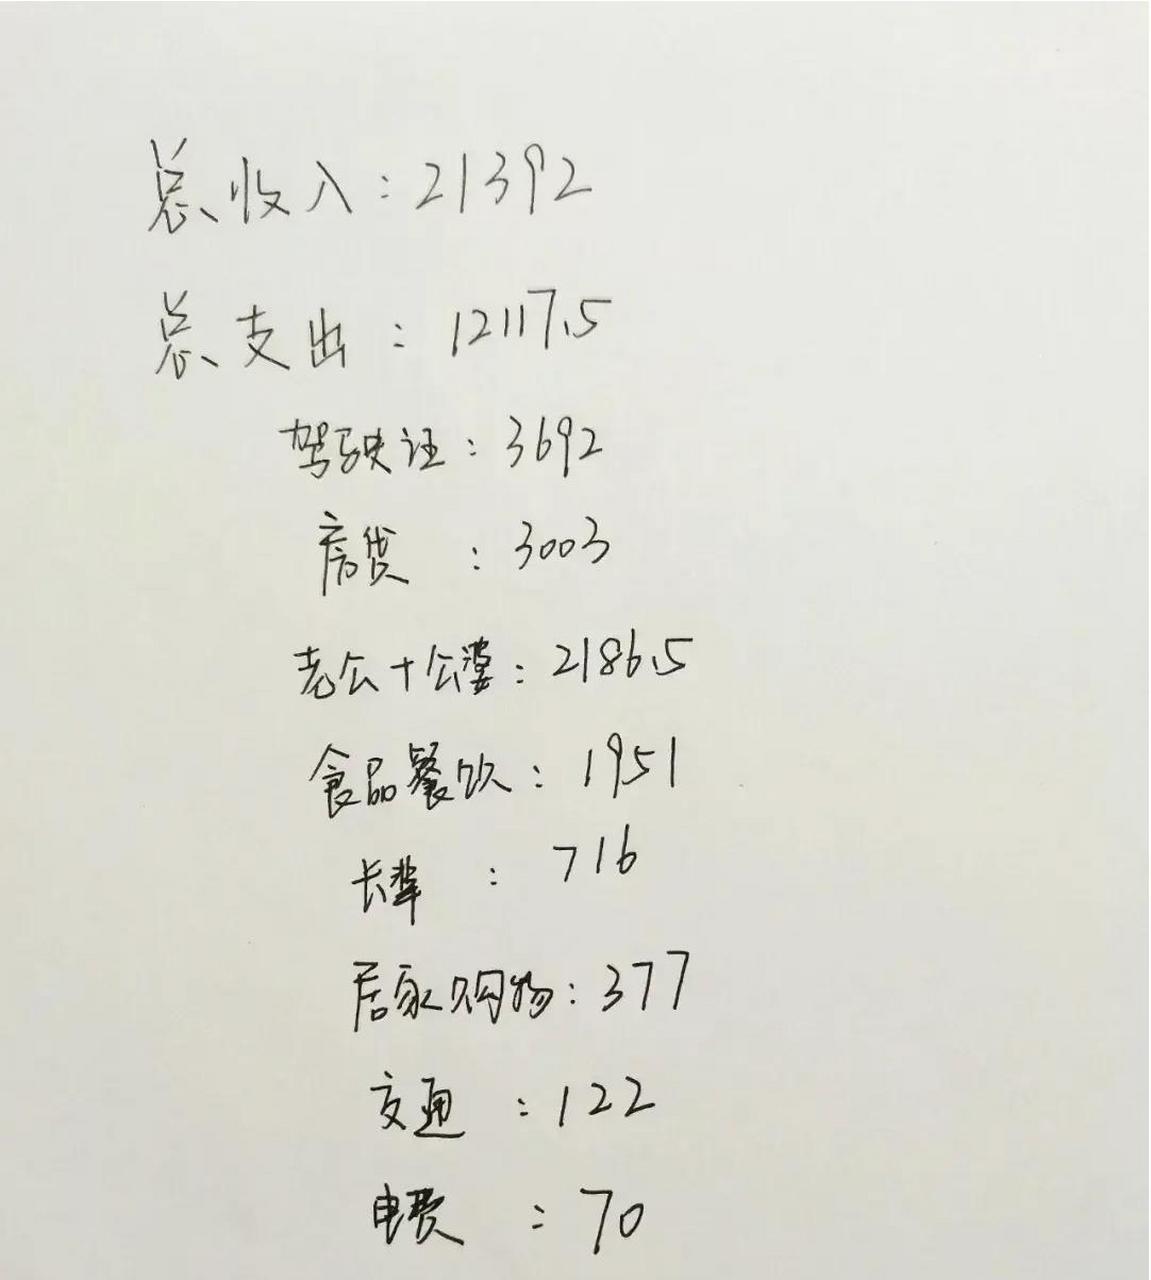 总收入：21392
总支出：12117.5
驾驶证：3692
房贷：3003
老公+公婆：2186.5
食品餐饮：1951
长辈：716
居家购物：377
交通：122
电费：70